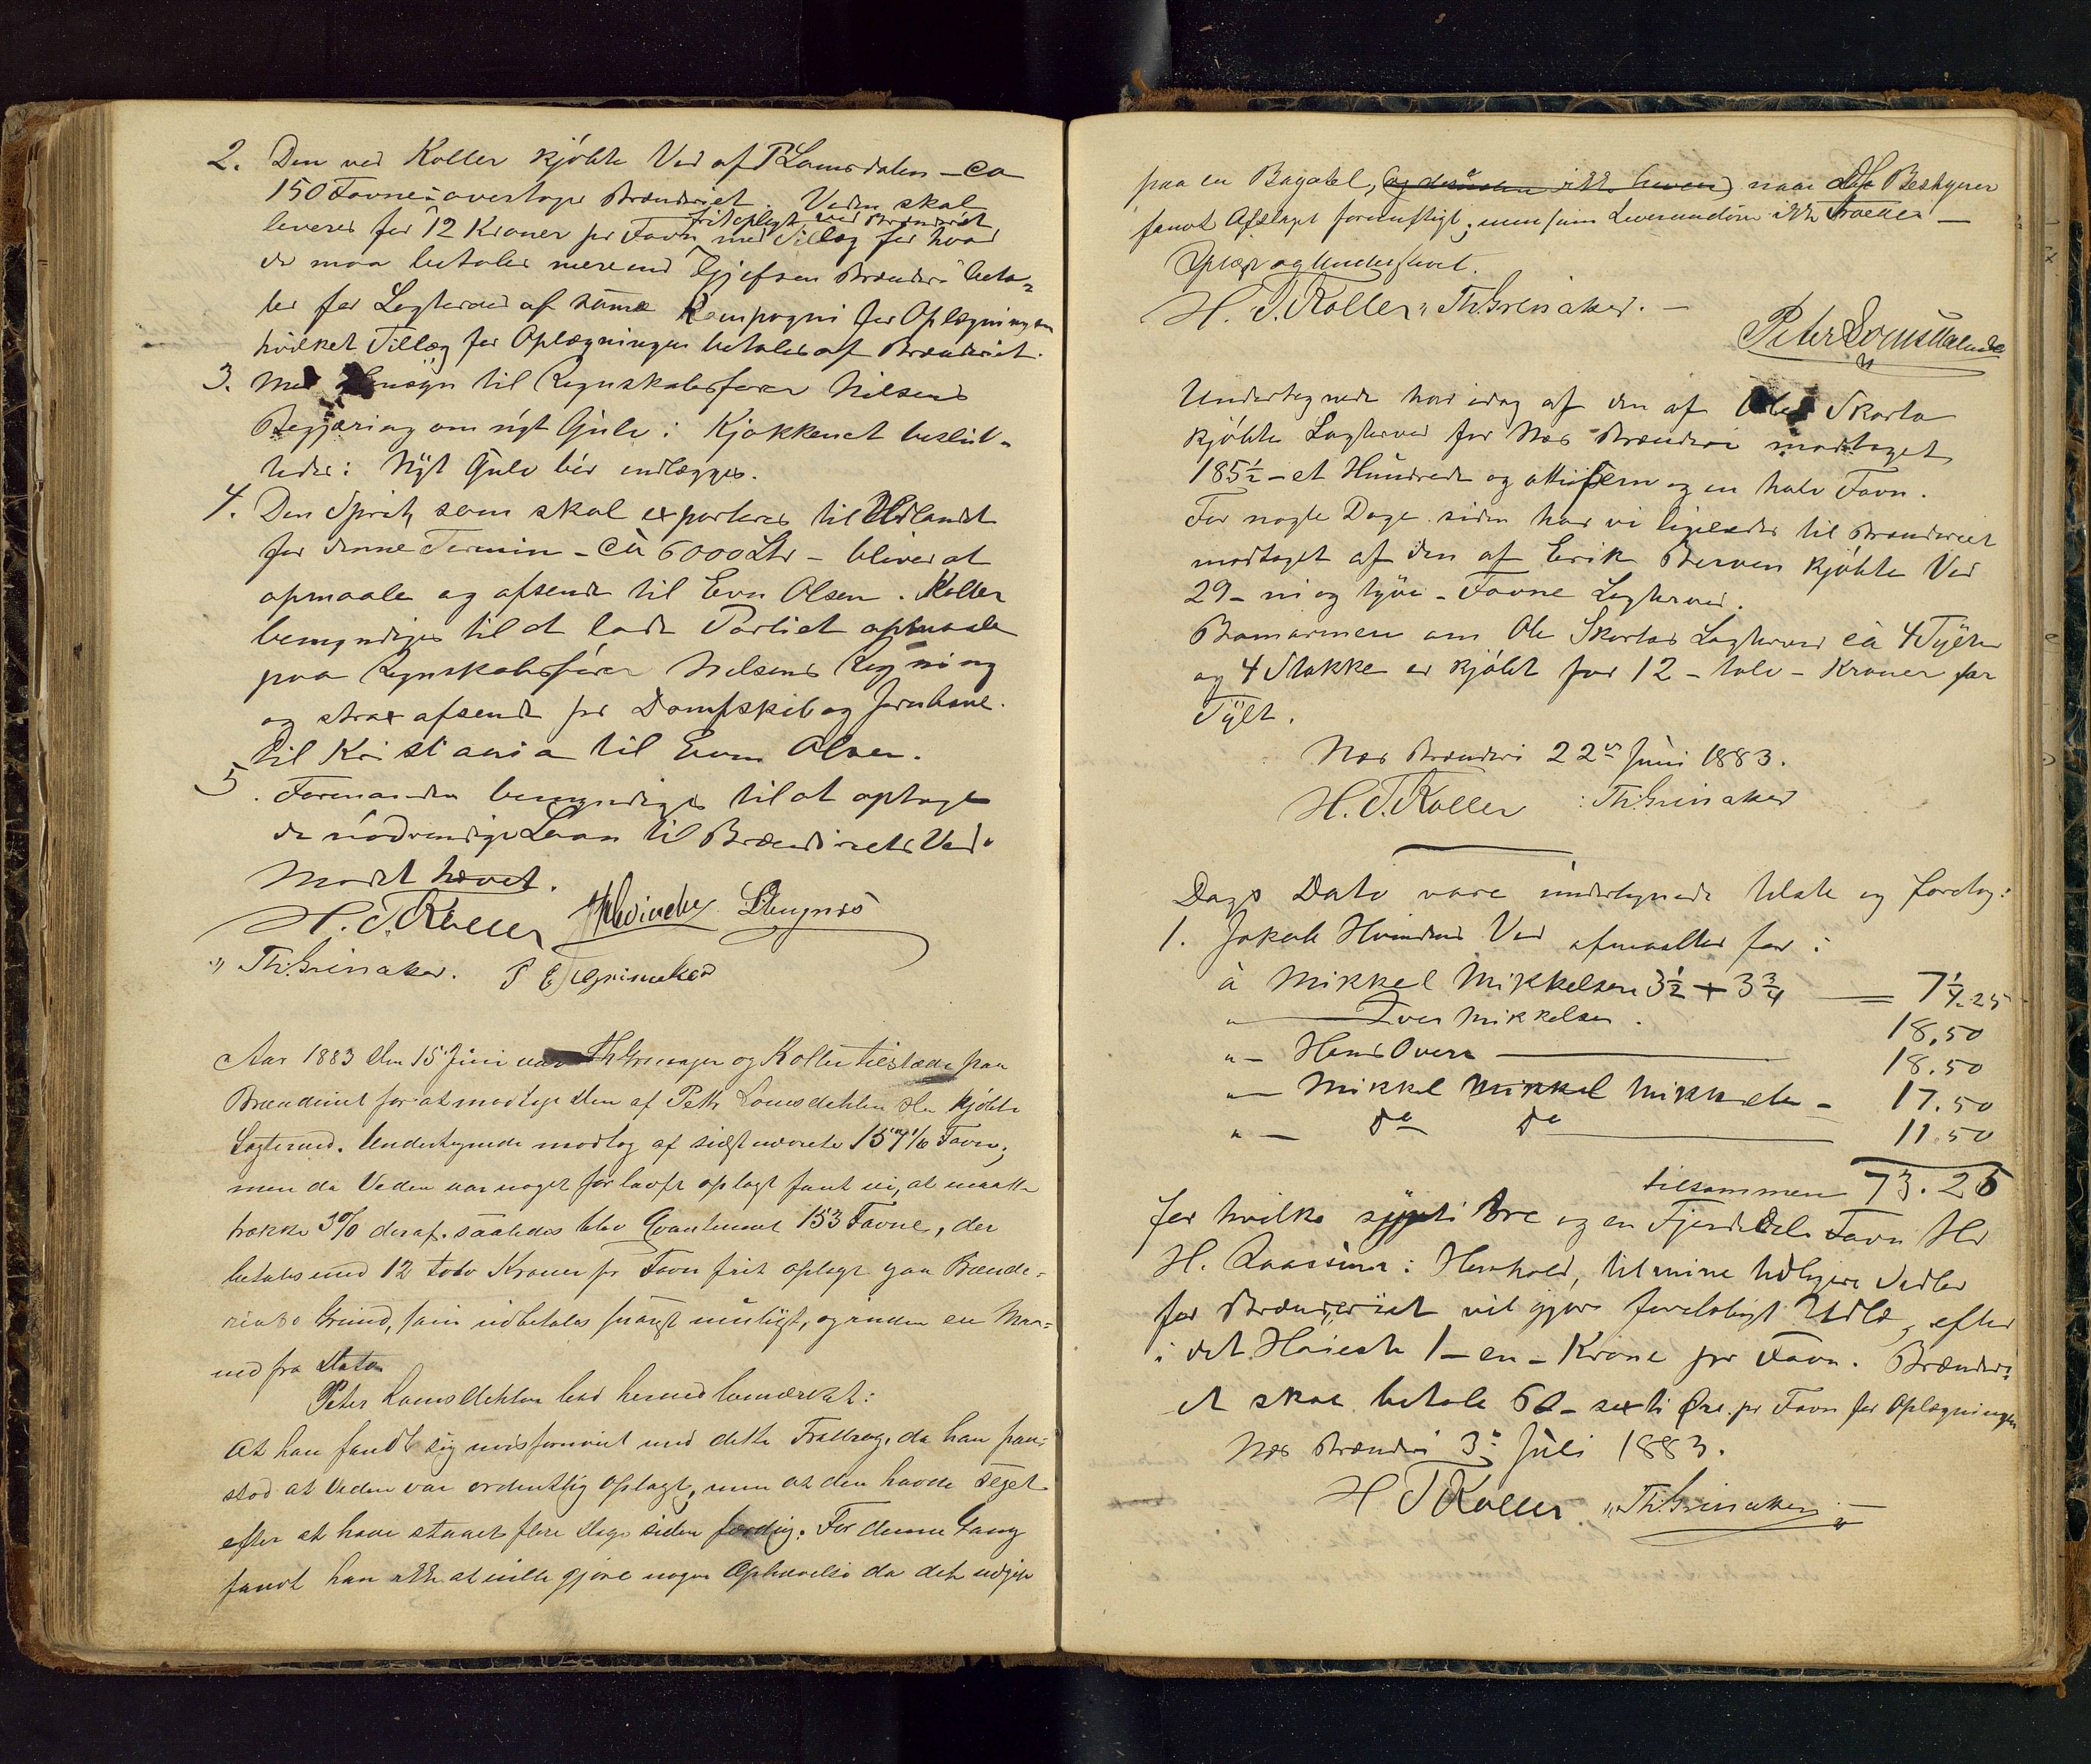 2. Den ved Koller kjöbte Ved af P Lomsdalen – ca
150 Favne – overtoges Brænderiet. Veden skal
leveres for 12 Kroner pr Favn frit oplagt ved Brænderiet med Tillæg for hvad
der maa betales mere end Gjefsen Brænderi beta-
ler for Lagterved af samme Kompagni for Oplægningen
hvilket Tillæg for Oplægningen betales af Brænderiet.
3. Med Hensyn til Regnskabsfører Nilsens
Begjæring om nyt Gulv i Kjøkkenet beslut-
tedes: Nyt Gulv bør indlægges.
4. Den Sprit, som skal exporteres til Udlandet
for denne Termin – ca 6000 Ltr – bliver at
opmaale og afsende til Evn Olsen. Koller
bemyndiges til at lade Partiet opmaale
paa Regnskabsfører Nilsens Regning
og strax afsendt pr Dampskib og Jernbane
til Kristiania til Evn Olsen.
5. Formanden bemyndiges til at optage
de nødvendige Laan til Brænderiets Ved.
Mødet hævet.
H. T. Koller Hvinden
" Th. Grinaker. P E Grinaker
Aar 1883 den 15 Juni var Th Grinager og Koller tilstæde paa
Brænderiet for at modtage den af Peter Lomsdahlen der kjöbte
Lagterved. Undertegnede modtog af sidstnævnte 157 1/6 Favn;
men da Veden var noget for løvst oplagt fant vi, at maatte
trække 3% deraf. saaledes blev Qvantumet 153 Favne, der
betales med 12 tolv Kroner pr Favn frit oplagt paa Brænde-
riets Grund, som udbetales snarest muligt, og inden en Maa-
ned fra Dato
Peter Lomsdahlen bad hermed bemærket:
At han fandt sig misfornøiet med dette Fradrag, da han paa-
stod at Veden var ordentlig oplagt, men at den havde seget
efter at have staaet flere Dage siden færdig. For denne Gang
fandt han ikke at ville gjøre nogen Ophævelse da det udgjør
paa en Bagatel, naar Bestyrer
fandt Afslaget fornuftigt; men som Leverandör ikke
Oplæst og Underskrevet.
H. T. Koller " Th. Grinaker. –
Peter Lomsdalen
Undertegnede har idag af den af Ole Skarta
kjöbte Lagterved for Næs Brænderi modtaget
185½ – et Hundrede og ottifem og en halv Favn.
For nogle Dage siden har vi ligeledes til Brænderiet
modtaget af den af Erik Berven kjöbte Ved
29 – ni og tyve – Favne Lagterved.
om Ole Skartas Lagterved ca 4 Tylter
og 4 Stokke er kjöbt for 12 – tolv – Kroner pr
Tylt.
Næs Brænderi 22de Juni 1883.
H. T. Koller : Th: Grinaker
Dags Dato vare undertegnede tilstæde og foretog:
1. Jakob Hvindens Ved afmaaltes for:
à Mikkel Mikkelsen 3½ + 3¾ = 7¼ 25
" — Iver Mikkelsen. 18,50
" – Hans Overn — 18.50
" — Mikkel Mikkel Mikkels – 17.50
" — do do — 11.50
tilsammen 73.25
for hvilke sytti tre og en Fjerdedels Favn Hr
H. i Henhold, til mine tidligere Vedtag
for Brænderiet vil gjøre foreløbigt Udlæg, efter
i det Høieste 1 – en – Krone pr Favn. Brænderi-
et skal betale 60 – sexti Øre pr Favn for Oplægningen
Næs Brænderi 3de Juli 1883.
H T Koller. " Th. Grinaker. –